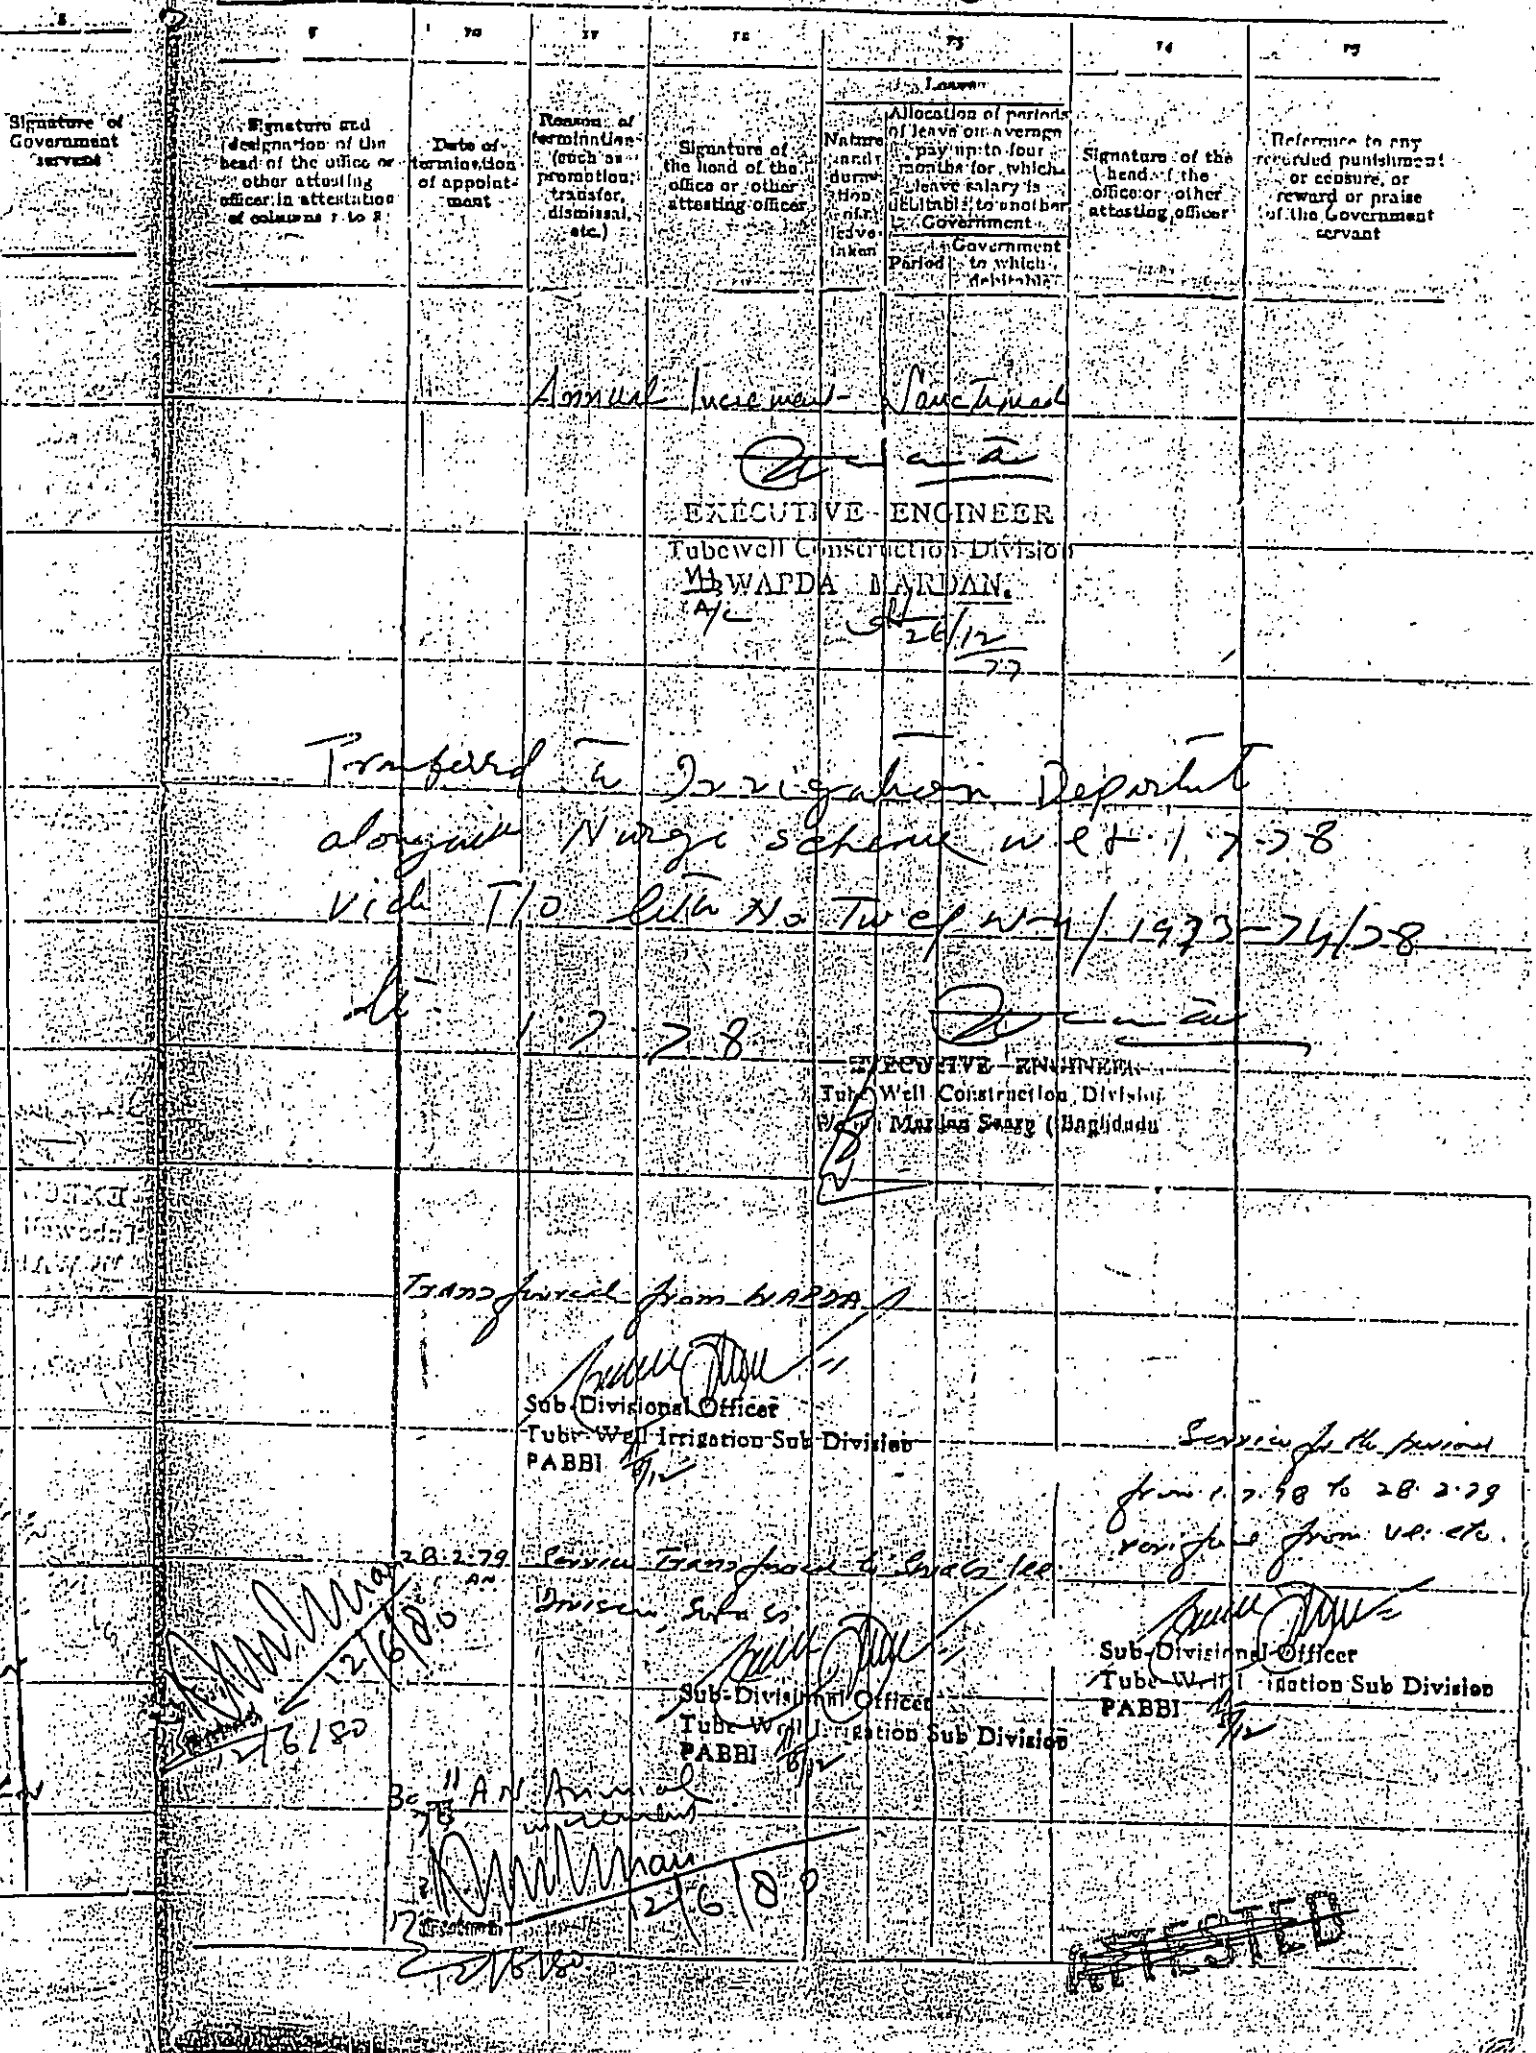 8
9
10
11
12
13
14
15
Signature of
Government
servant
Signature and
designation of the
head of the office or
other attesting
officer in attestation
of columns 1 to 8
Date of
termination
of appoint-
ment
Reason of
termination
(such as
promotion,
transfer,
dismissal,
etc.)
Signature of
the head of the
office or other
attesting officer
Leave
Nature
and
dura-
tion
of
leave
taken
Allocation of periods
of leave on average
pay up to four
months for which
leave salary is
debitable to another
Government
Period
Government
to which
debitable
Signature of the
head of the
office or other
attesting officer
Reference to any
recorded punishment
or censure, or
reward or praise
of the Government
servant
Annual Increment Sanctioned
EXECUTIVE ENGINEER
Tubewell Construction Division
WAPDA MARDAN.
A/C
26/12
77
Transferred to Irrigation Department
alongwith scheme w e f 1.7.78
vide T/O letter No 1973-74/78
1.7.78
EXECUTIVE ENGINEER
Tube Well Construction Division
Mardan Scarp (Baghdada
Transferred from WAPDA
Sub-Divisional Officer
Tube-Well Irrigation Sub Division
PABBI
Service for the period
from 1.7.78 to 28.2.79
verified from
28.2.79 AN
Service Transferred to
Division
12/6/80
12/6/80
Sub-Divisional Officer
Tube-Well Irrigation Sub Division
PABBI
Sub-Divisional Officer
Tube-Well Irrigation Sub Division
PABBI
30 11 78 AN Annual
increment
12/6/80
12/6/80
ATTESTED